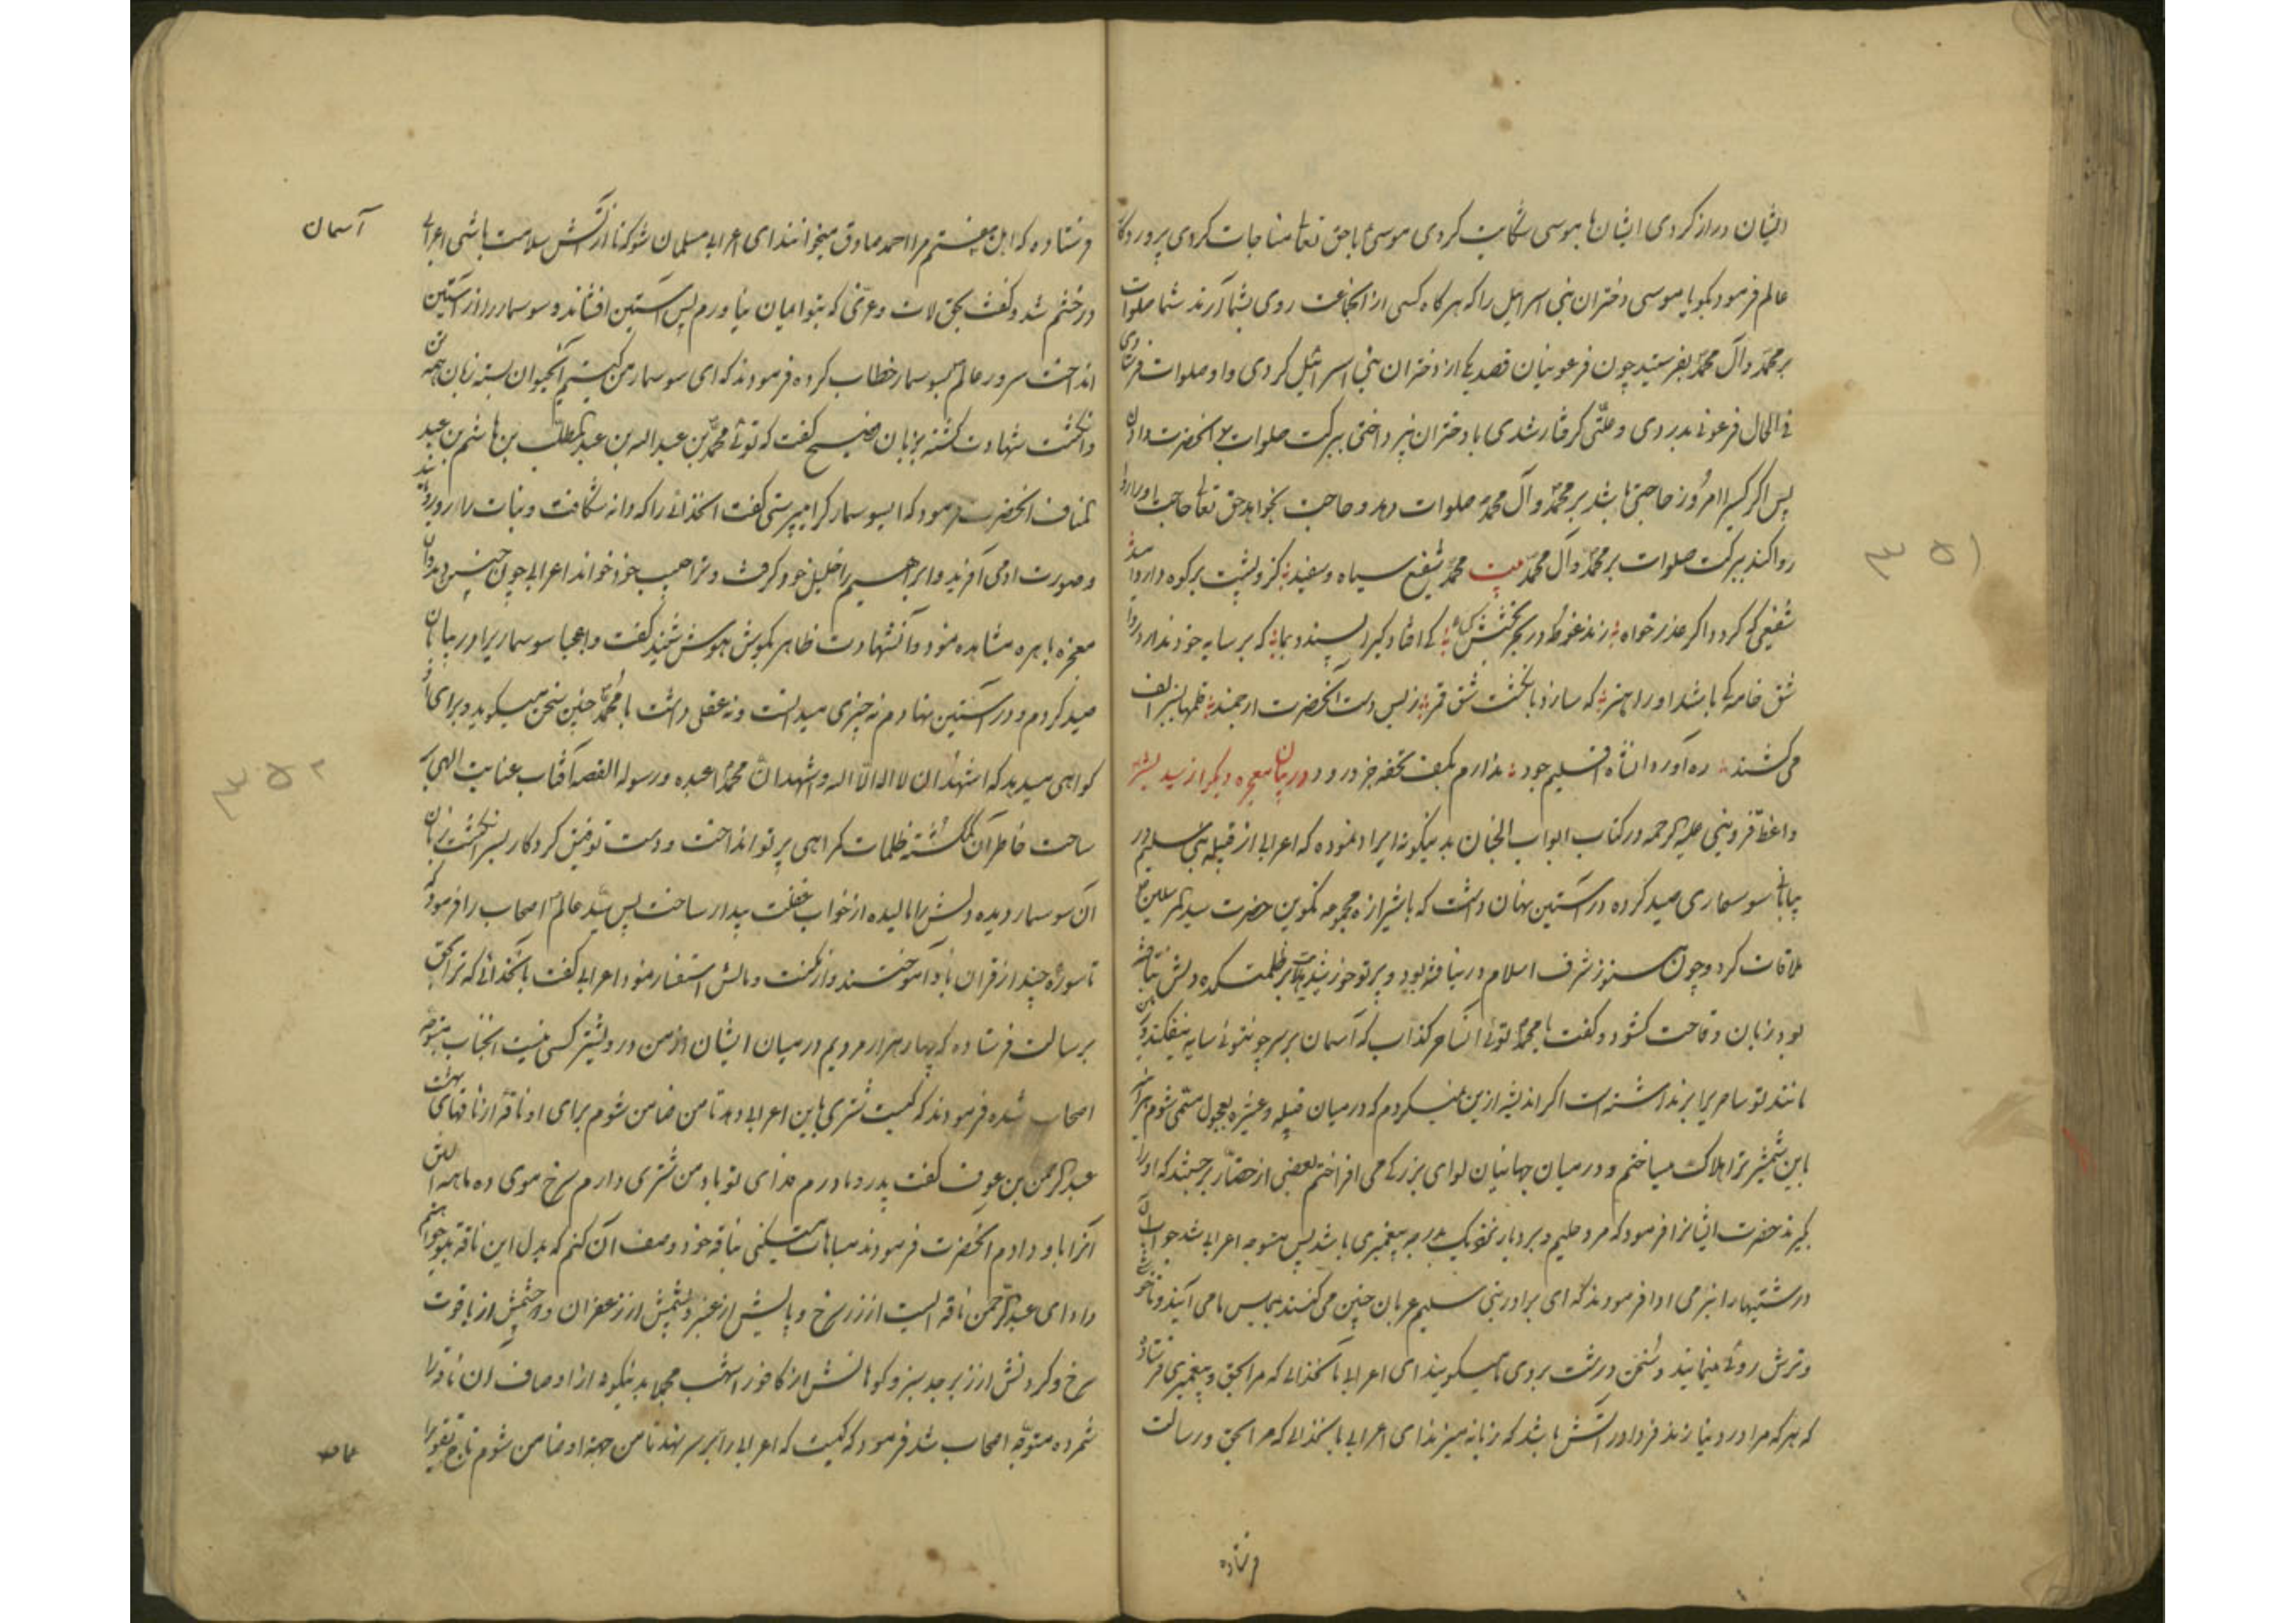 ایشان دراز کردی ایشان بموسی شکایت کردی موسی با حق تعالی مناجات کردی پروردکار
عالم فرمود بکو یا موسی دختران بنی اسرائیل را که هر کاه کسی از انجماعت روی بشما آرند شما صلوات
بر محمد و آل محمد بفرستید چون فرعونیان قصد یکی از دختران بنی اسرائیل کردی و او صلوات فرستادی
فی الحال فرعونی بدردی و علتی کرفتار شدی با دختران نپرداختی ببرکت صلوات بر انحضرت دادن
پس اکر کسیرا امروز حاجتی باشد بر محمد و آل محمد صلوات دهد و حاجت بخواهد حق تعالی حاجت او را
روا کند ببرکت صلوات بر محمد و آل محمد بیت محمد شفیع سیاه و سفید کزو پشت بر کوه دارد امید
شفیعی که کردد اکر عذر خواه زند غوطه در بحر بخشش کناه کی افتاد کیرا پسندد بما که بر سایه خود ندارد روا
شق خامه کی باشد او را هنر که سازد بانکشت شق قمر ز بس دست آنحضرت ارجمند قلمها بنر الف
می کشند ره آورد ان شاه اقلیم جود ندارم بکف تحفه جز درود در بیان معجزه دیکر از سید بشر
واعظ قزوینی علیه الرحمه در کتاب ابواب الجنان بدینکونه ایراد نموده که اعرابی از قبیله بنی سلیم در
بیابانی سوسماری صید کرده در آستین نهان داشت که با شیرازه مجموعه تکوین حضرت سید المرسلین
ملاقات کرد و چون هنوز شرف اسلام در نیافته بود و پرتو خورشید هدایت بر ظلمتکده دلش نتافته
بود زبان وقاحت کشود و کفت یا محمد توئی آن ساحر کذاب که آسمان بر سر چو نتوئی سایه نیفکنده و زمین
مانند تو ساحریرا بر نداشته است اکر اندیشه ازین نمیکردم که در میان قبیله و عشیره بعجول متهمی شوم هر آینه
باین شمشیر ترا هلاک میساختم و در میان جهانیان لوای بزرکی می افراختم بعضی از حضار برجستند که او را
کیرند حضرت ایشانرا فرمود که مرد حلیم و بردبار نزدیک بدرجه پیغمبری باشد پس متوجه اعرابی شد جواب آن
درشتیها را بنرمی ادا فرمودند که ای برادر بنی سلیم عربان چنین می کنند بمجلس ما می آیند و ناخوشی
و ترش روئی مینمایند و سخن درشت بروی ما میکویند ای اعرابی بآنخدائی که مرا بحق و پیغمبری فرستاده
که هر که مرا در دنیا زند فردا در آتش باشد که زبانه میزند ای اعرابی بانخدائی که مرا بحق و رسالت
فرستاده
۳۵۱
فرستاده که اهل هفتم مرا احمد صادق میخوانند ای اعرابی مسلمان شو که تا از آتش سلامت باشی اعرابی
در خشم شد و کفت بحق لات و عزی که بتو ایمان نیاورم پس آستین افشاند و سوسمار را از آستین
انداخت سرور عالم بسوسمار خطاب کرده فرمودند که ای سوسمار من کیستم آنحیوان بسته زبان همه تن
و انکشت شهادت کشته بزبان فصیح کفت که توئی محمد بن عبد الله بن عبد المطلب بن هاشم بن عبد
مناف انحضرت فرمود که ای سوسمار کرا میپرستی کفت انخدائی را که دانه شکافت و نبات را رویاند
و صورت ادمی آفرید و ابراهیم را خلیل خود کرفت و ترا حبیب خود خواند اعرابی چون چنین دید و آن
معجزه باهره مشاهده نمود و آنشهادت ظاهر بکوش هوش شنید کفت واعجبا سوسماریرا در بیابان
صید کردم و در آستین نهادم نه چیزی میدانست و نه عقل داشت با محمد چنین سخن میکوید و برای او
کواهی میدهد که اشهد ان لا اله الا الله و اشهد ان محمدا عبده و رسوله القصه آفتاب عنایت الهی بر
ساحت خاطر آن کمکشته ظلمات کمراهی پرتو انداخت و دست توفیق کردکار بسر انکشت زبان
آن سوسمار دیده دلش را مالیده از خواب غفلت بیدار ساخت پس سید عالم اصحاب را فرمود که
تا سوره چند از قران باو آموختند و از مکنت و مالش استفسار نمود اعرابی کفت بانخدائی که ترا بحق
برسالت فرستاده که چهار هزار مردیم در میان ایشان از من درویشتر کسی نیست انجناب متوجه
اصحاب شده فرمودند که کیست شتری باین اعرابی دهد تا من ضامن شوم برای او ناقه از ناقهای بهشت
عبد الرحمن بن عوف کفت پدر و مادرم فدای تو باد من شتری دارم سرخ موی ده ماهه آبستن
آنرا باو دادم آنحضرت فرمودند مباهات میکنی بناقه خود وصف آن کنم که بدل این ناقه بتو خواهم
داد ای عبد الرحمن ناقه ایست از زر سرخ و پایش از عنبر و پشمش از زعفران و چشمش از یاقوت
سرخ و کردنش از زبرجد سبز و کوهانش از کافور اشهب مجملا بدینکونه از اوصاف آن ناقه را
شمرده متوجه اصحاب شد فرمود که کیست که اعرابی را بر سر نهد تا من جهة او ضامن شوم تاج تقوی را
آسمان
۳۵۲